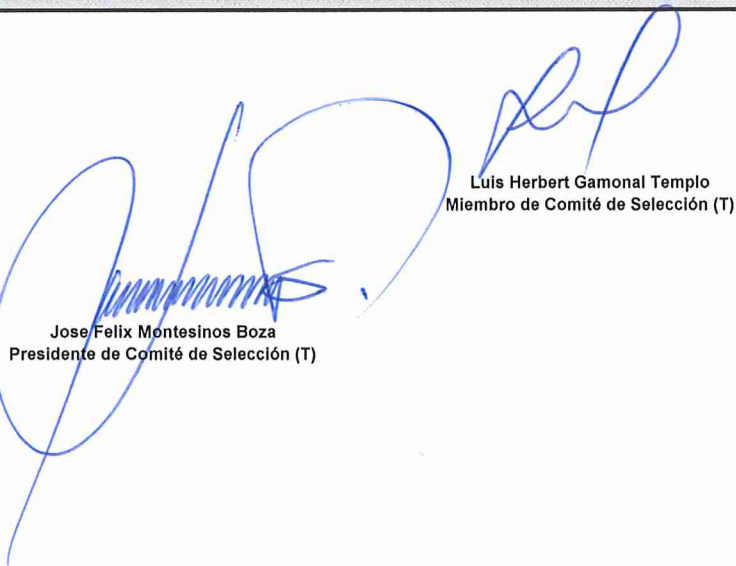 Luis Herbert Gamonal Templo
Miembro de Comité de Selección (T)
Jose Felix Montesinos Boza
Presidente de Comité de Selección (T)